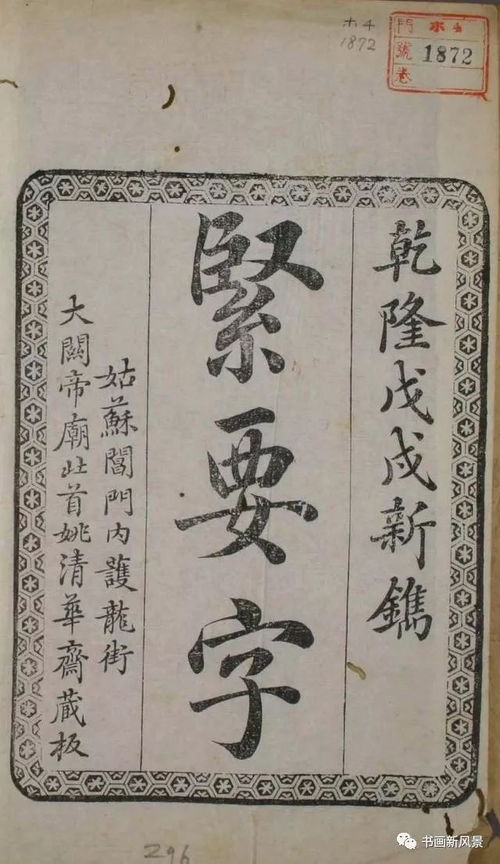 ホ4
1872
門 ホ4
號 1872
卷
乾隆戊戌新鐫
緊要字
姑蘇閶門內護龍街
大關帝廟北首姚清華齋藏板
296
书画新风景